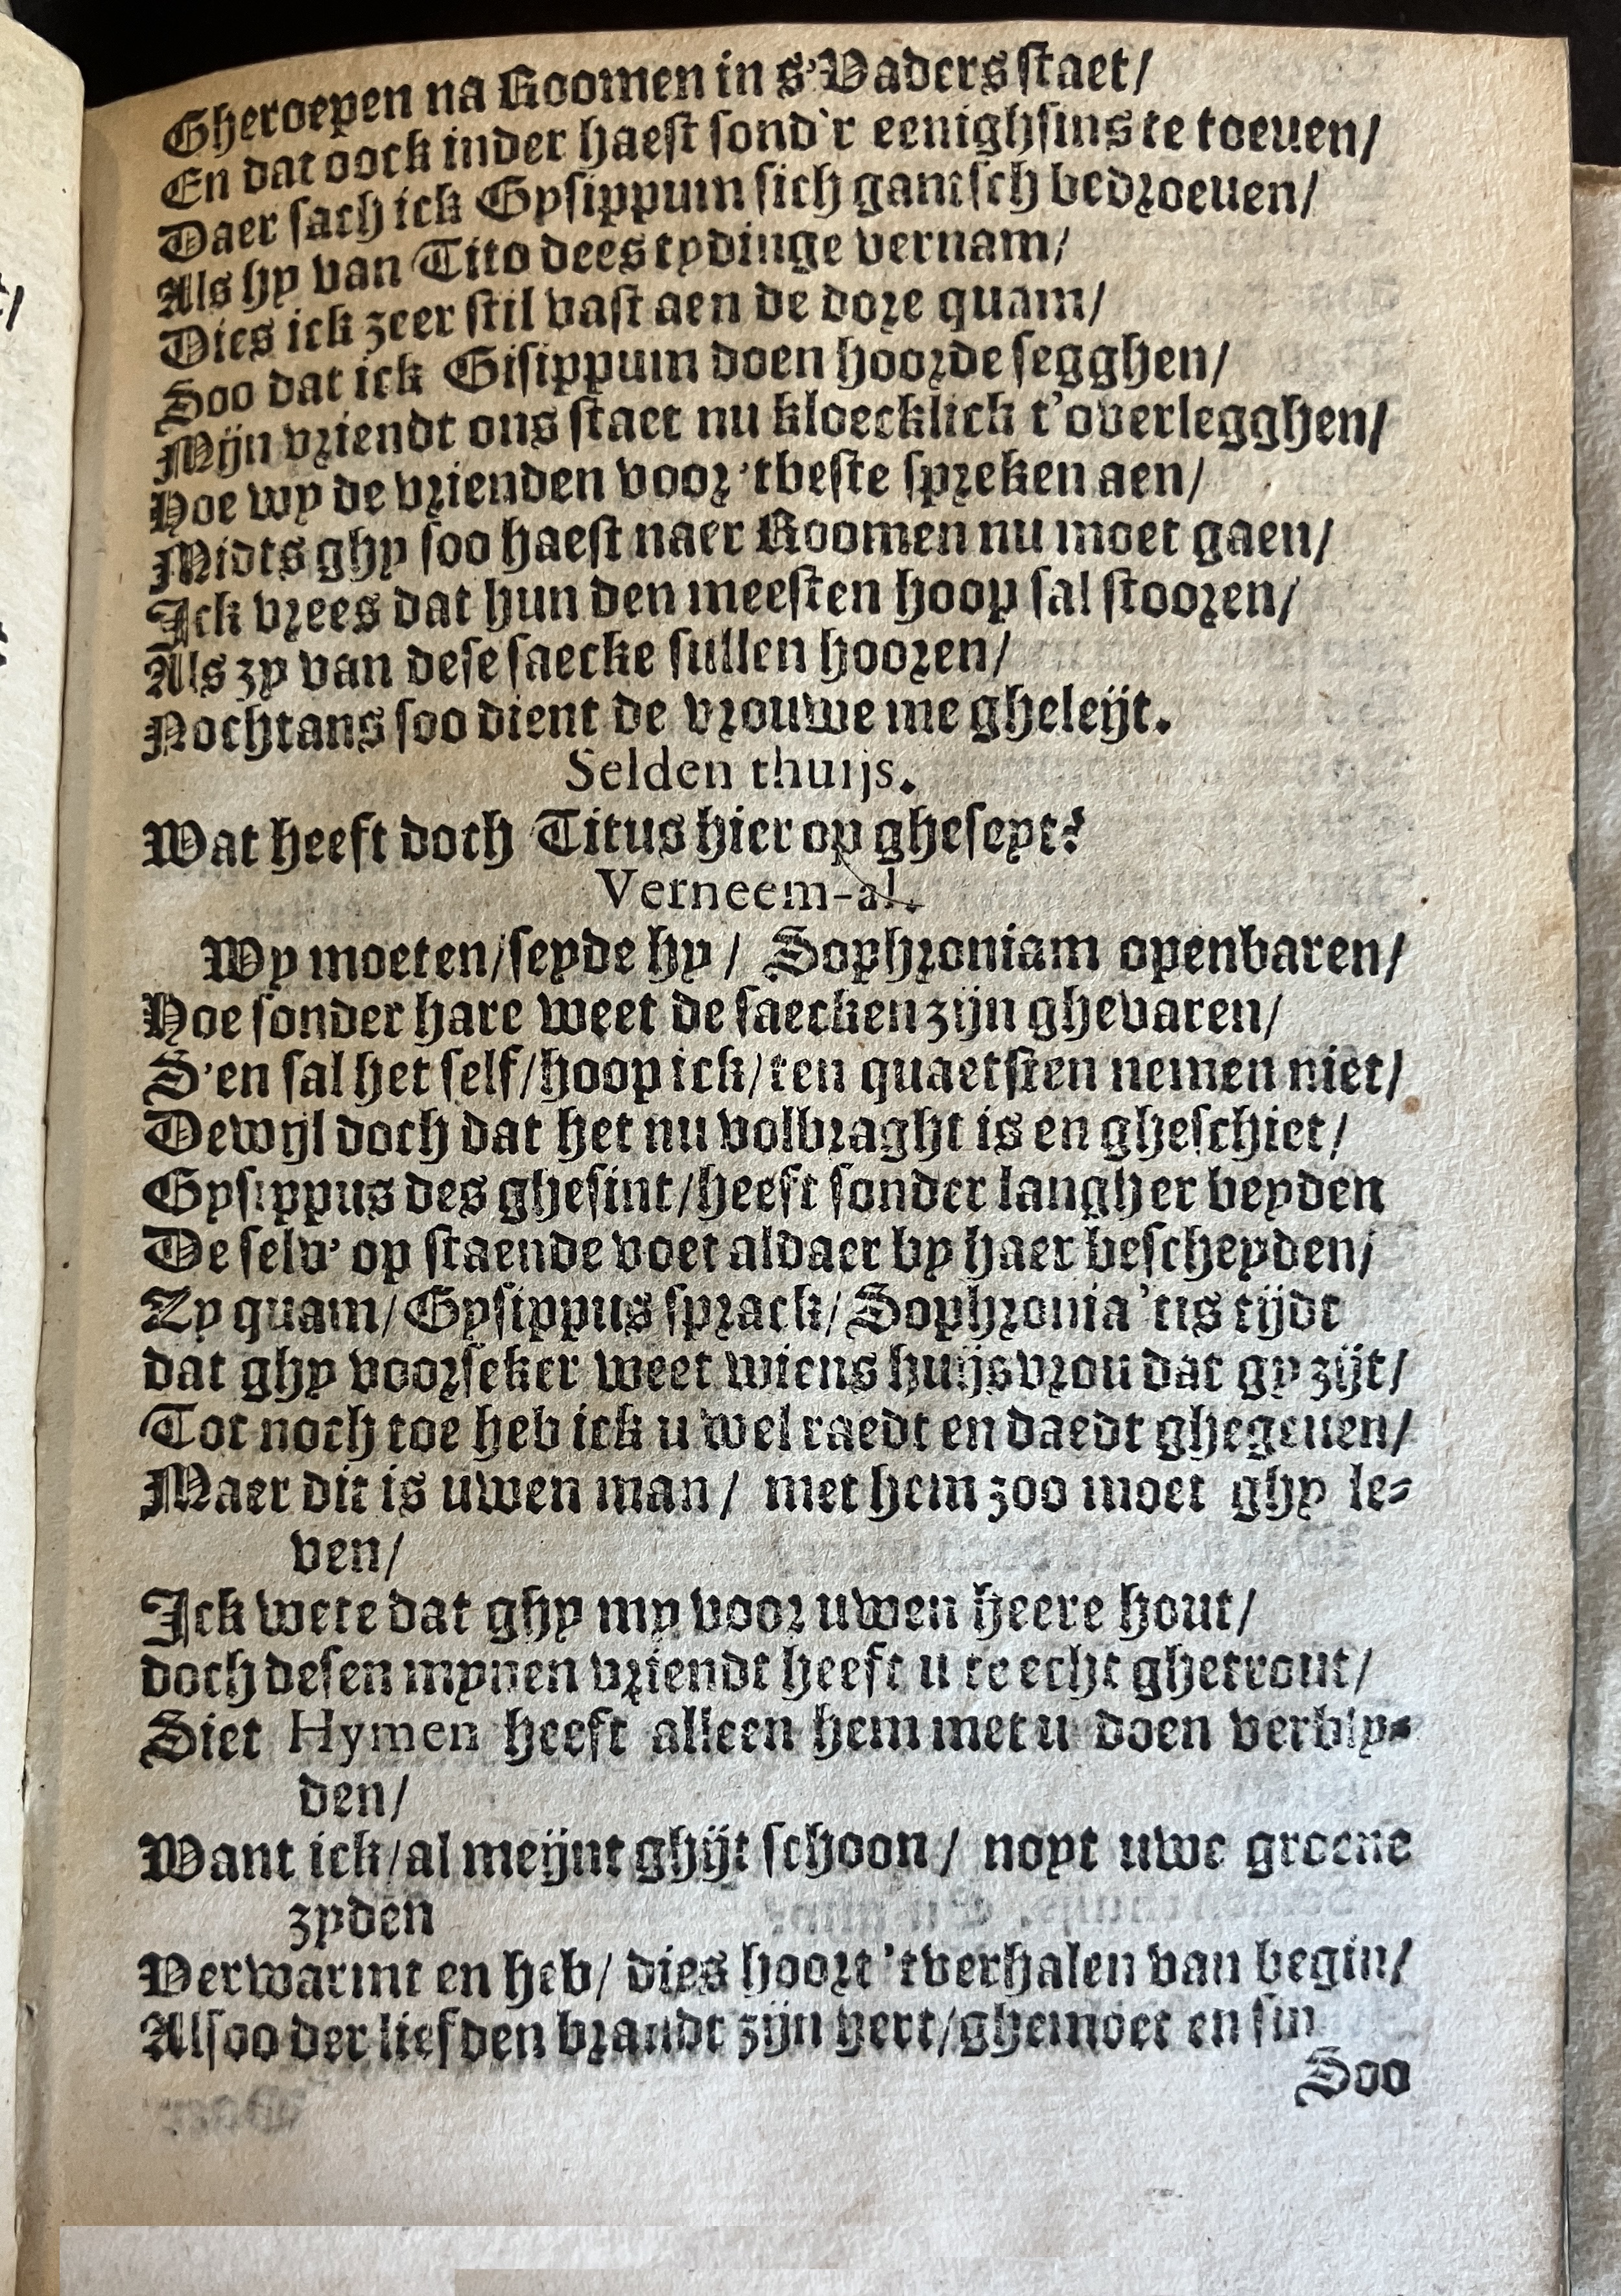 Gheroepen na Roomen in s'Vaders staet/
En dat oock inder haest sond'r eenighsins te toeuen/
Daer sach ick Gysippum sich gantsch bedroeuen/
Als hy van Tito dees tydinge vernam/
Dies ick zeer stil vast aen de dore quam/
Soo dat ick Gisippum doen hoorde segghen/
Mijn vriendt ons staet nu kloecklick t'overlegghen/
Hoe wy de vrienden voor 'tbeste spreken aen/
Midts ghy soo haest naer Roomen nu moet gaen/
Ick vrees dat hun den meesten hoop sal stooren/
Als zy van dese saecke sullen hooren/
Nochtans soo dient de vrouwe me gheleijt.
Selden thuijs.
Wat heeft doch Titus hier op gheseyt?
Verneem-al.
Wy moeten/seyde hy/ Sophroniam openbaren/
Hoe sonder hare weet de saecken zijn ghevaren/
S'en sal het self/hoop ick/ten quaetsten nemen niet/
Dewijl doch dat het nu volbraght is en gheschiet/
Gysippus des ghesint/heeft sonder langher beyden
De selv' op staende voet aldaer by haer bescheyden/
Zy quam/Gysippus sprack/Sophronia 'tis tijdt
dat ghy voorseker weet wiens huijsvrou dat gy zijt/
Tot noch toe heb ick u wel raedt en daedt ghegeuen/
Maer dit is uwen man/ met hem zoo moet ghy le-
ven/
Ick wete dat ghy my voor uwen heere hout/
doch desen mynen vriendt heeft u te echt ghetrout/
Siet Hymen heeft alleen hem met u doen verbly-
den/
Want ick/al meijnt ghijt schoon/ noyt uwe groene
zyden
Verwarmt en heb/ dies hoort 'tverhalen van begin/
Alsoo der liefden brandt zijn hert/ghemoet en sin
Soo